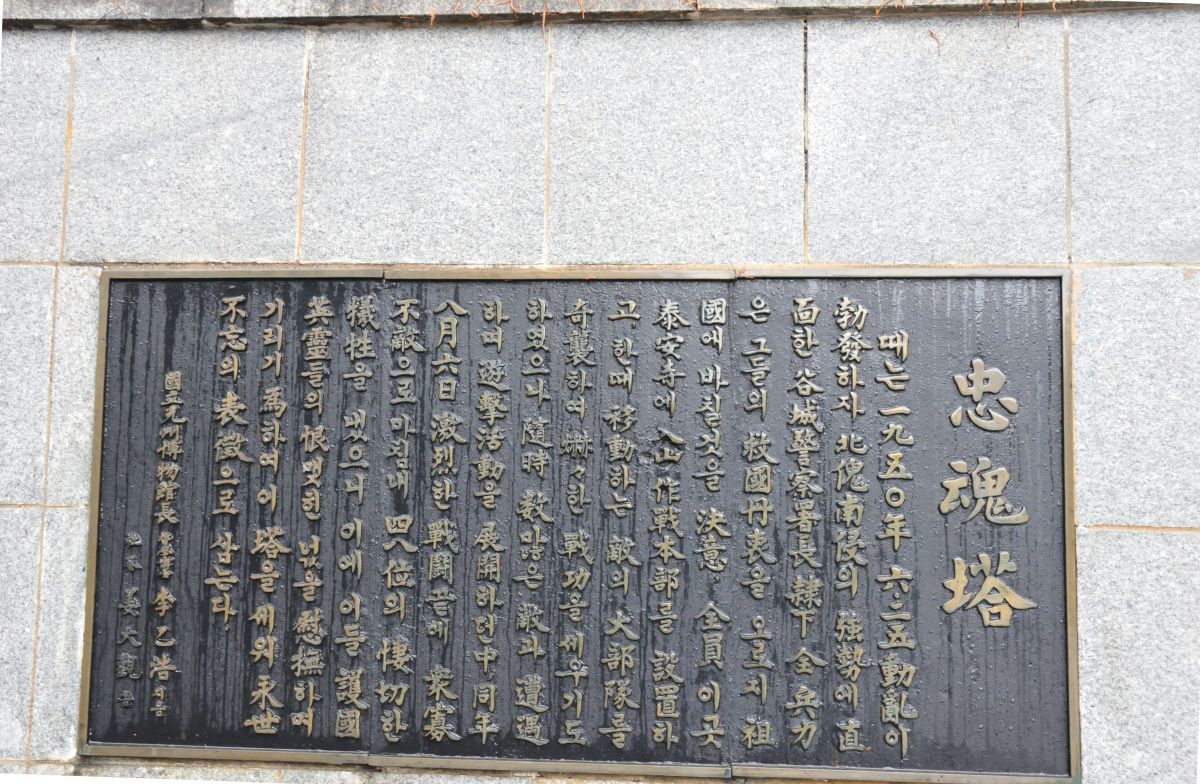 忠魂塔
때는 一九五〇年 六二五動亂이
勃發하자 北傀南侵의 強勢에 直
面한 谷城警察署長 隸下 全 兵力
은 그들의 救國丹衷을 오로지 祖
國에 바칠것을 決意, 全員 이곳
泰安寺에 入山 作戰本部를 設置하
고, 한때 移動하는 敵의 大部隊를
奇襲하여 赫々한 戰功을 세우기도
하였으나 隨時 數많은 敵과 遭遇
하며 遊擊活動을 展開하던中 同年
八月六日 激烈한 戰鬪끝에 衆寡
不敵으로 마침내 四八位의 悽切한
犧牲을 냈으니 이에 이들 護國
英靈들의 恨맺힌 넋을 慰撫하며
기리기 爲하여 이 塔을 세워 永世
不忘의 表徵으로 삼는다.
國立光州博物館長 李乙浩 지음